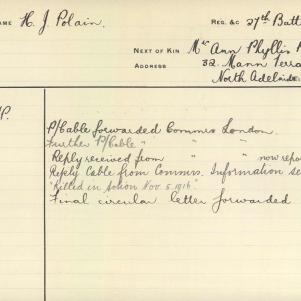 NAME H. J. Polain. REG. &C 27th Batt
NEXT OF KIN Mrs Ann Phyllis P
ADDRESS 32. Mann Terra
North Adelaide.
P.
P/Cable forwarded Commrs London.
Further P/Cable " " "
Reply received from " " now repo
Reply Cable from Commrs. Information se
"Killed in action Nov. 5. 1916"
Final circular letter forwarded